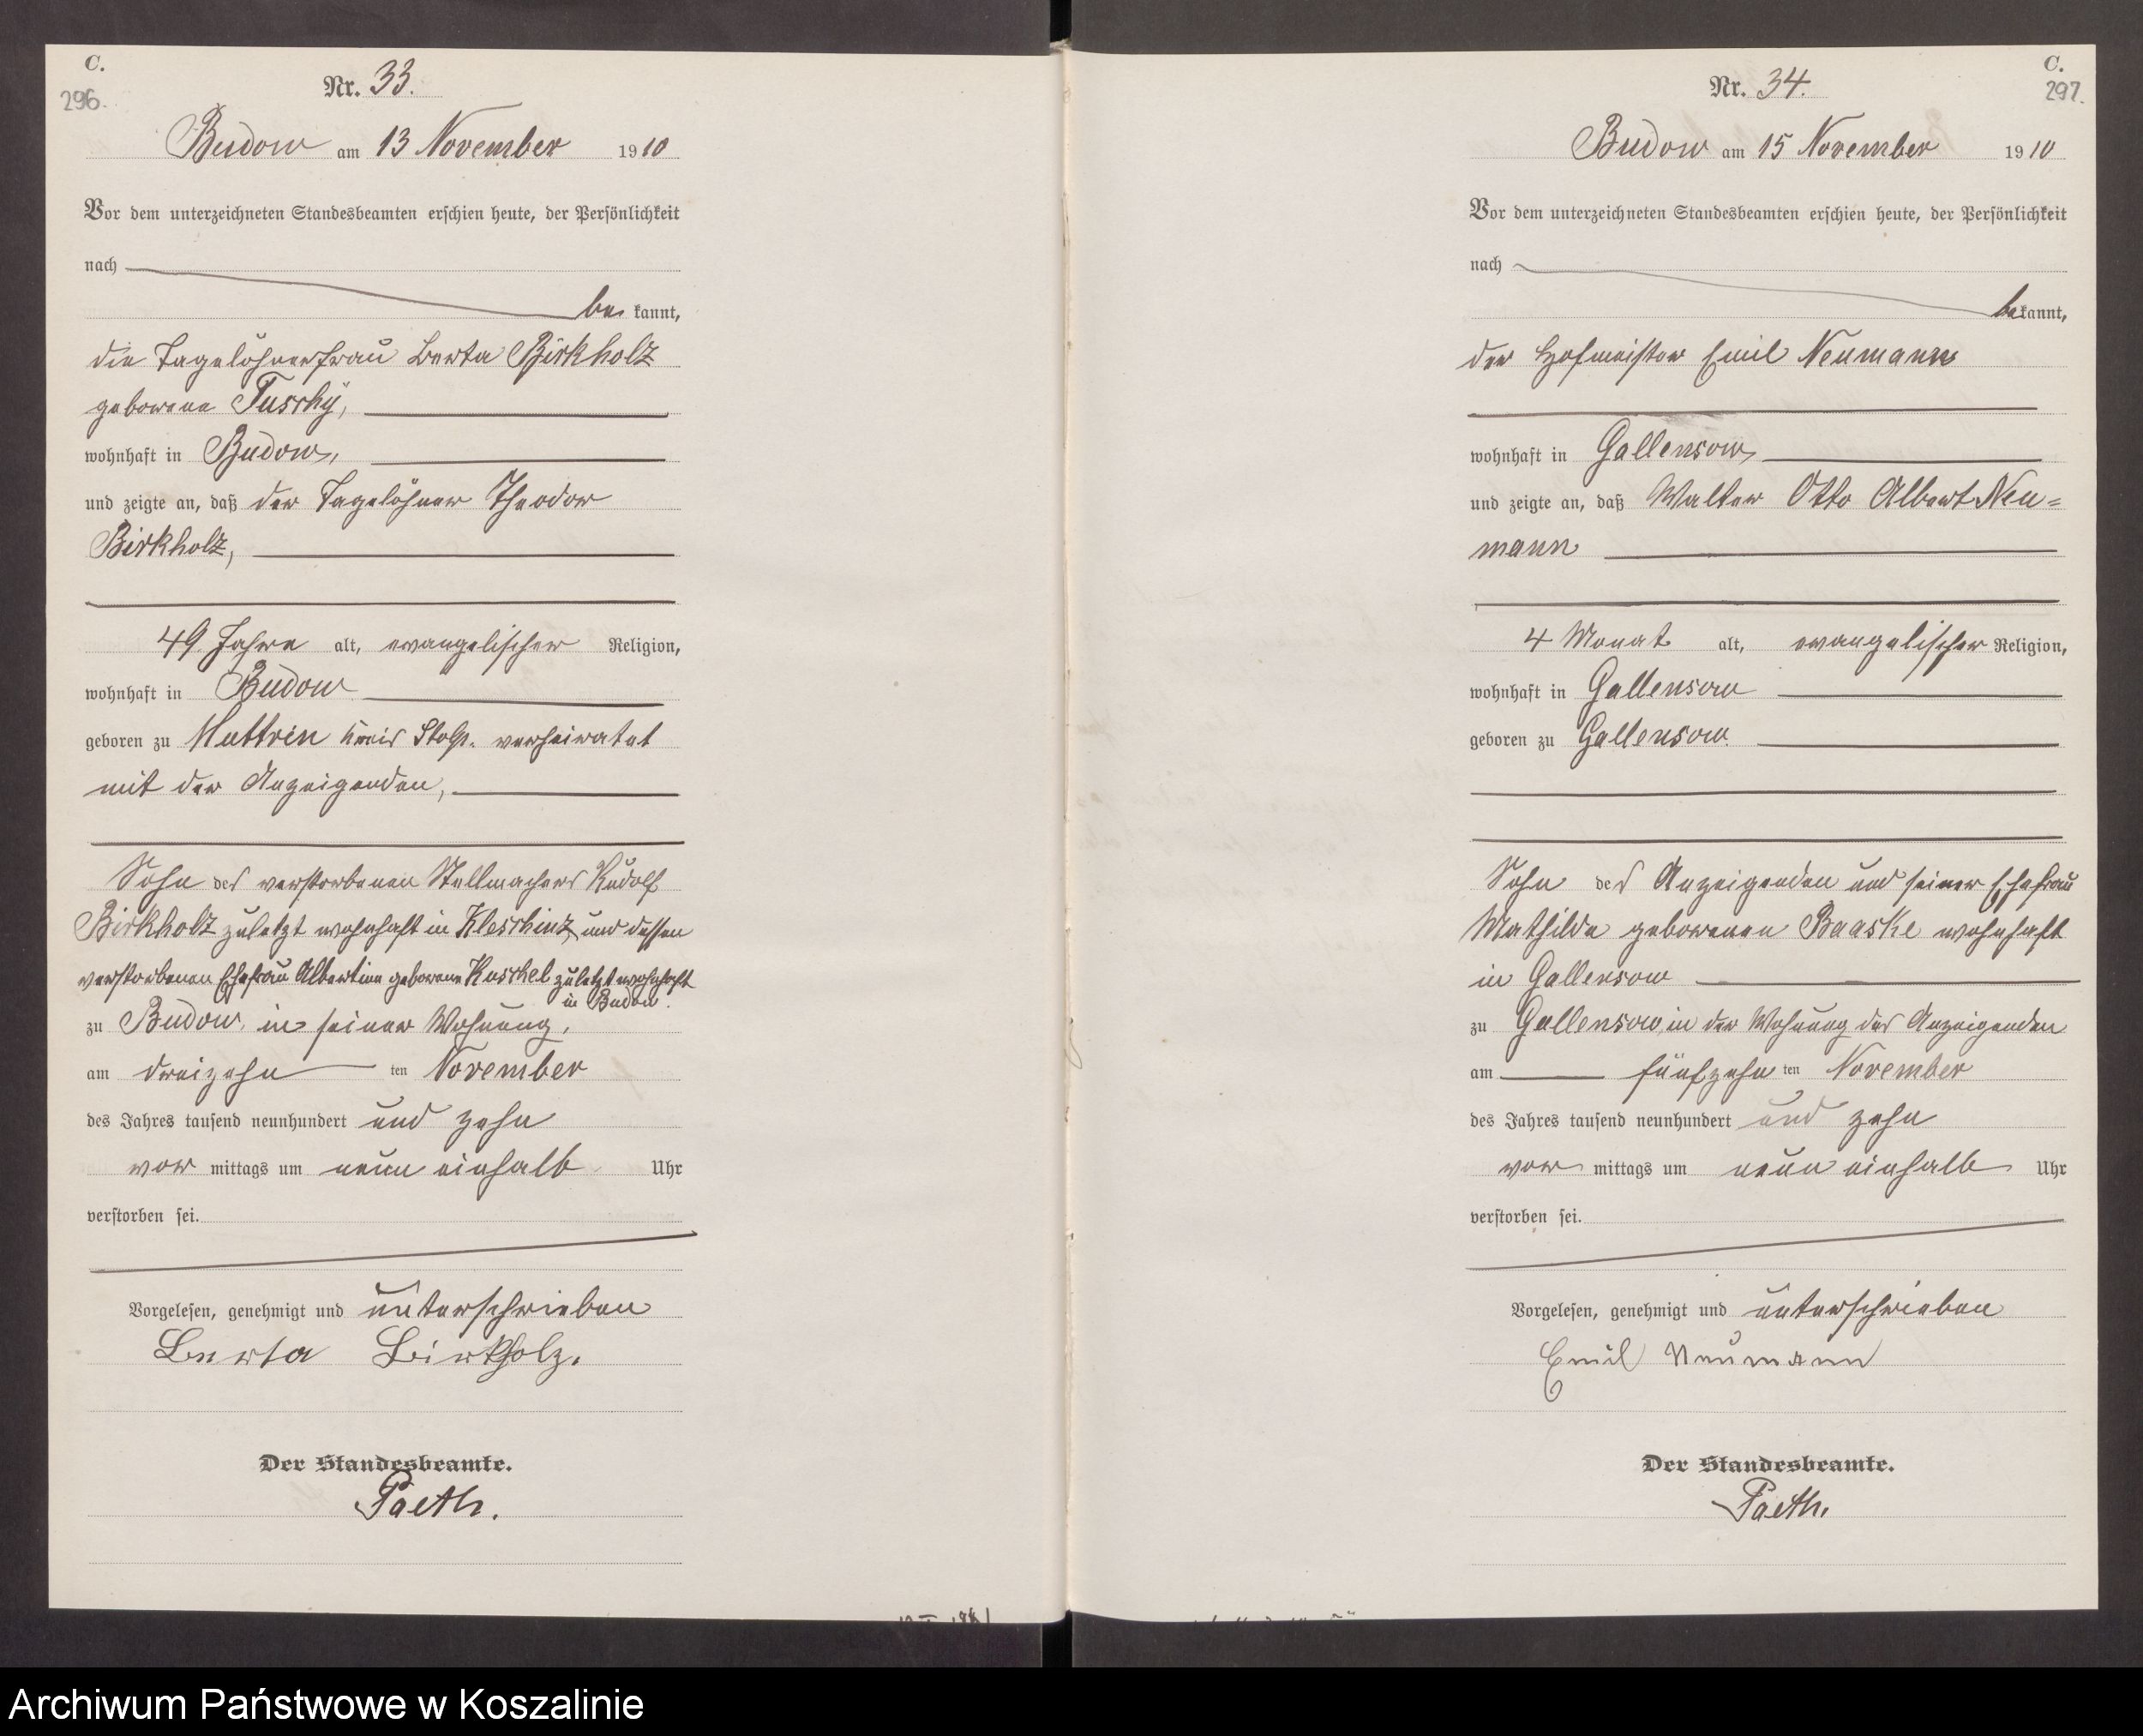 C.
296.
Nr. 33.
Budow am 13 November 1910
Vor dem unterzeichneten Standesbeamten erschien heute, der Persönlichkeit
nach
be kannt,
die Tagelöhnerfrau Berta Birkholz
geborene Tuschy,
wohnhaft in Budow,
und zeigte an, daß der Tagelöhner Theodor
Birkholz,
49 Jahre alt, evangelischer Religion,
wohnhaft in Budow
geboren zu Muttrin Kreis Stolp. verheiratet
mit der Anzeigenden,
Sohn des verstorbenen Stellmachers Rudolf
Birkholz zuletzt wohnhaft in Kleschinz, und dessen
verstorbenen Ehefrau Albertine geborene Kuschel zuletzt wohnhaft
in Budow.
zu Budow, in seiner Wohnung,
am dreizehn ten November
des Jahres tausend neunhundert und zehn
vor mittags um neun einhalb Uhr
verstorben sei.
Vorgelesen, genehmigt und unterschrieben
Berta Birkholz.
Der Standesbeamte.
Paeth.
C.
297.
Nr. 34.
Budow am 15 November 1910
Vor dem unterzeichneten Standesbeamten erschien heute, der Persönlichkeit
nach
bekannt,
der Hofmeister Emil Neumann
wohnhaft in Gallensow,
und zeigte an, daß Walter Otto Albert Neu=
mann
4 Monat alt, evangelischer Religion,
wohnhaft in Gallensow
geboren zu Gallensow.
Sohn des Anzeigenden und seiner Ehefrau
Mathilde geborenen Baaske wohnhaft
in Gallensow
zu Gallensow, in der Wohnung des Anzeigenden
am fünfzehn ten November
des Jahres tausend neunhundert und zehn
vor mittags um neun einhalb Uhr
verstorben sei.
Vorgelesen, genehmigt und unterschrieben
Emil Neumann
Der Standesbeamte.
Paeth.
Archiwum Państwowe w Koszalinie